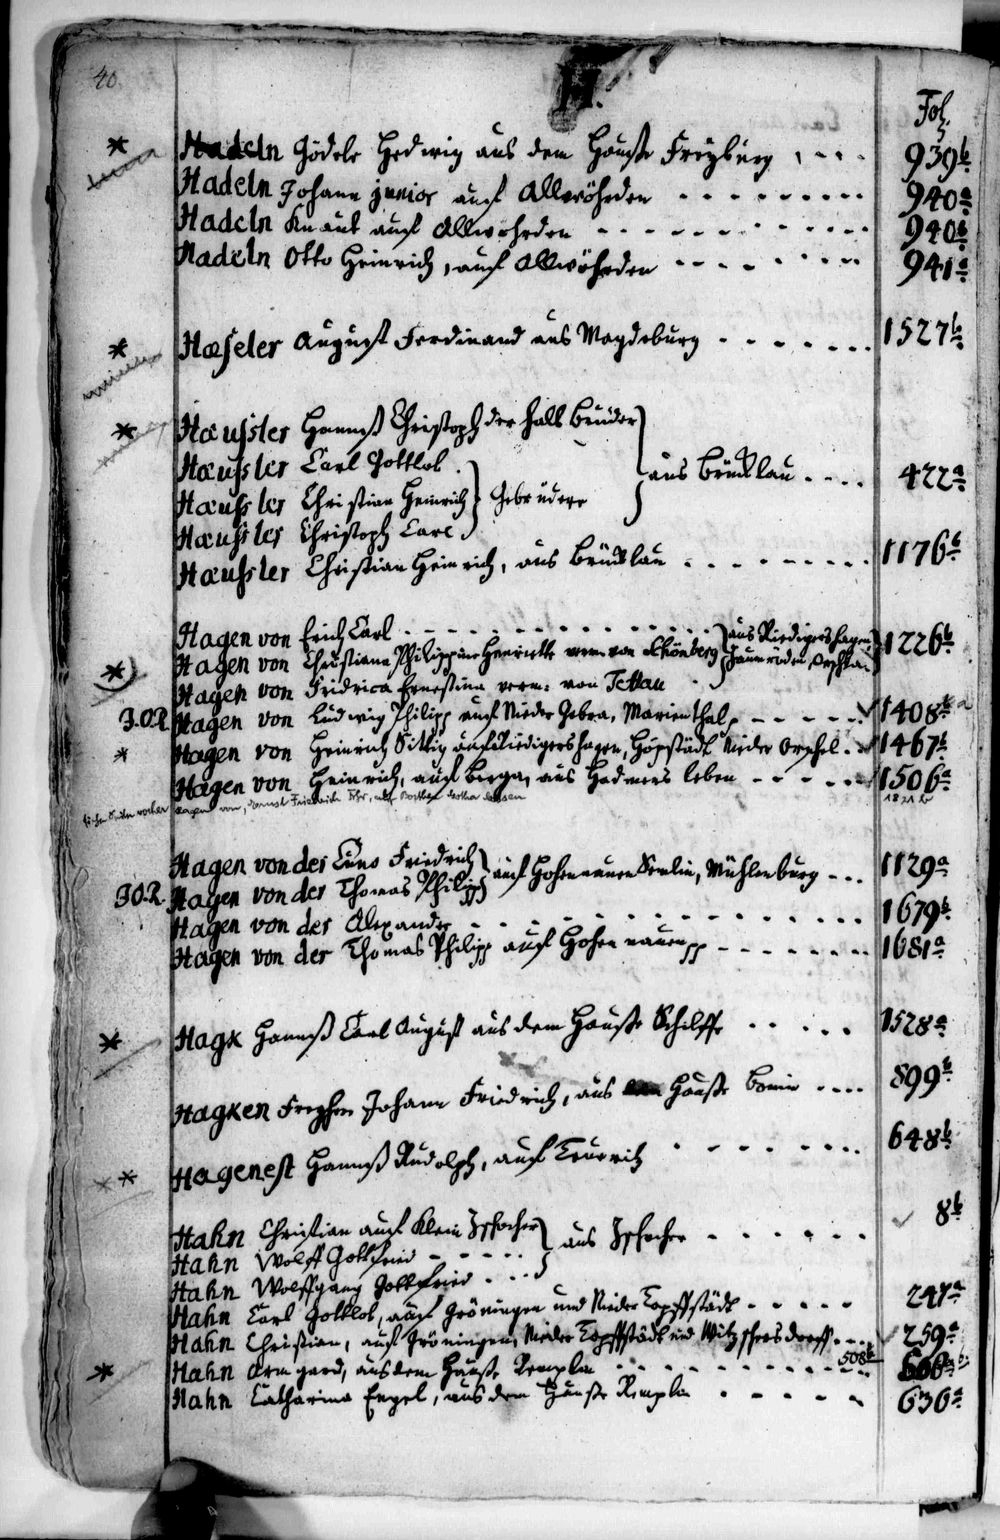 40.
H.
Fol.
Hadeln Gödele Hedwig aus dem Hauße Freyburg 939b
Hadeln Johann junior auf Allwöhrden 940a
Hadeln Knaut auf Allwöhrden 940b
Hadeln Otto Heinrich, auf Allwöhrden 941a
Hæseler August Ferdinand aus Magdeburg 1527b
Hæußler Hannß Christoph der halb Brüder
Hæußler Carl Gottlob aus Brücklau 422a
Hæußler Christian Heinrich Gebrüdere
Hæußler Christoph Carl
Hæußler Christian Heinrich, aus Brücklau 1176b
Hagen von Erich Carl aus Rüdigershagen 1226b
Hagen von Christiana Philippine Henriette verm. von Schönberg
Hagen von Fridrica Ernestina verm. von Tettau
J.O.R. Hagen von Ludwig Philipp auf Nieder Gebra, Marienthal 1408b
Hagen von Heinrich Sittig auf Rüdigershagen, Hopstädt Nieder Orschel 1467b
Hagen von Heinrich, auf Berga, aus Hadmersleben 1506a
Hagen von, Ernst Friedrich 1821b
Hagen von der Cuno Friedrich auf Hohennauen Semlin, Mühlenburg 1129a
J.O.R. Hagen von der Thomas Philipp
Hagen von der Alexander 1679b
Hagen von der Thomas Philipp auf Hohennauen pp 1681a
Hagk Hannß Carl August aus dem Hauße Schilffe 1528a
Hagken Freyherr Johann Friedrich, aus Hauße 899b
Hagenest Hannß Rudolph, auf 648b
Hahn Christian auf Klein Zschocher aus Zschocher 8b
Hahn Wolff Gottfried
Hahn Wolffgang Gottfried
Hahn Carl Gottlob, auf Gröningen und Nieder Topffstädt 247a
Hahn Christian, auf Gröningen, Nieder Topffstädt und Witzschersdorff 259a
Hahn Armgard, aus dem Hauße Remplin 508b
Hahn Catharina Engel, aus dem Hauße Remplin 636a